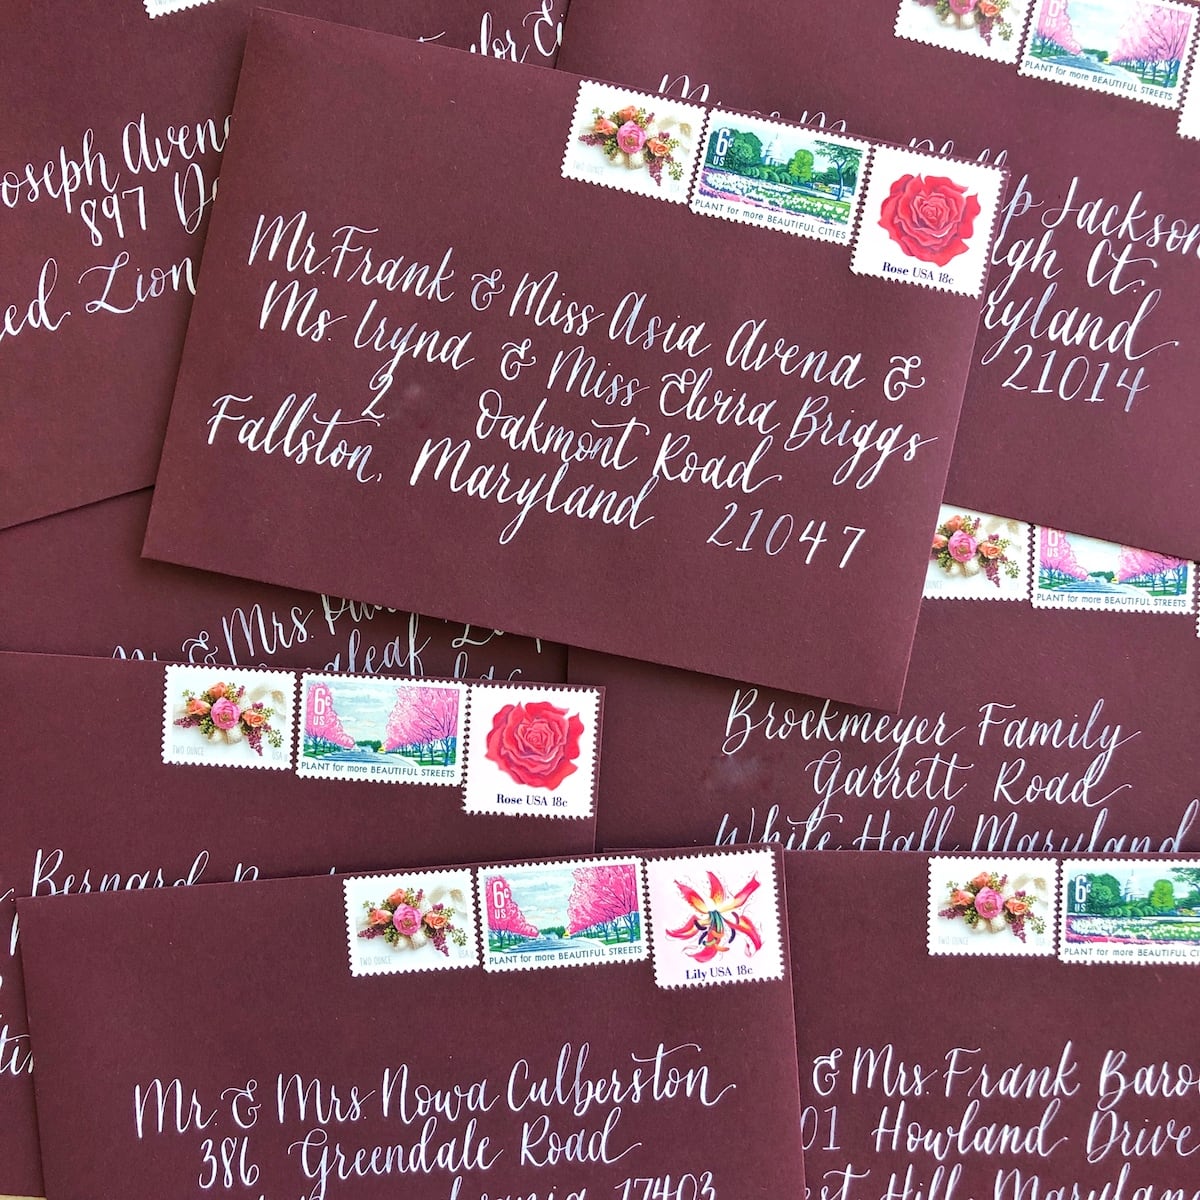 Joseph Aven
897
Lion
TWO OUNCE
USA
6c
US
PLANT for more BEAUTIFUL CITIES
Rose USA 18c
Mr. Frank & Miss Asia Avena &
Ms. Iryna & Miss Elvira Briggs
2 Oakmont Road
Fallston, Maryland 21047
6c
US
PLANT for more BEAUTIFUL STREETS
Jackson
Ct.
21014
& Mrs.
TWO OUNCE
USA
6c
US
PLANT for more BEAUTIFUL STREETS
Rose USA 18c
Bernard
6c
US
PLANT for more BEAUTIFUL STREETS
Brockmeyer Family
Garrett Road
White Hall, Maryland
TWO OUNCE
6c
US
PLANT for more BEAUTIFUL STREETS
Lily USA 18c
Mr. & Mrs. Nowa Culberston
386 Greendale Road
17403
TWO OUNCE
USA
6c
US
PLANT for more BEAUTIFUL CI
& Mrs. Frank Baro
01 Howland Drive
Hill, Maryland